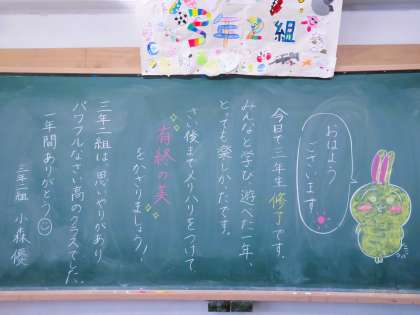 3年2組
おはよう
ございます!
今日で三年生修了です。
みんなと学び、遊べた一年、
とっても楽しかったです。
さい後までメリハリをつけて、
有終の美
をかざりましょう!
三年二組は、思いやりがあり、
パワフルなさい高のクラスでした。
一年間ありがとう
三年二組 小森優